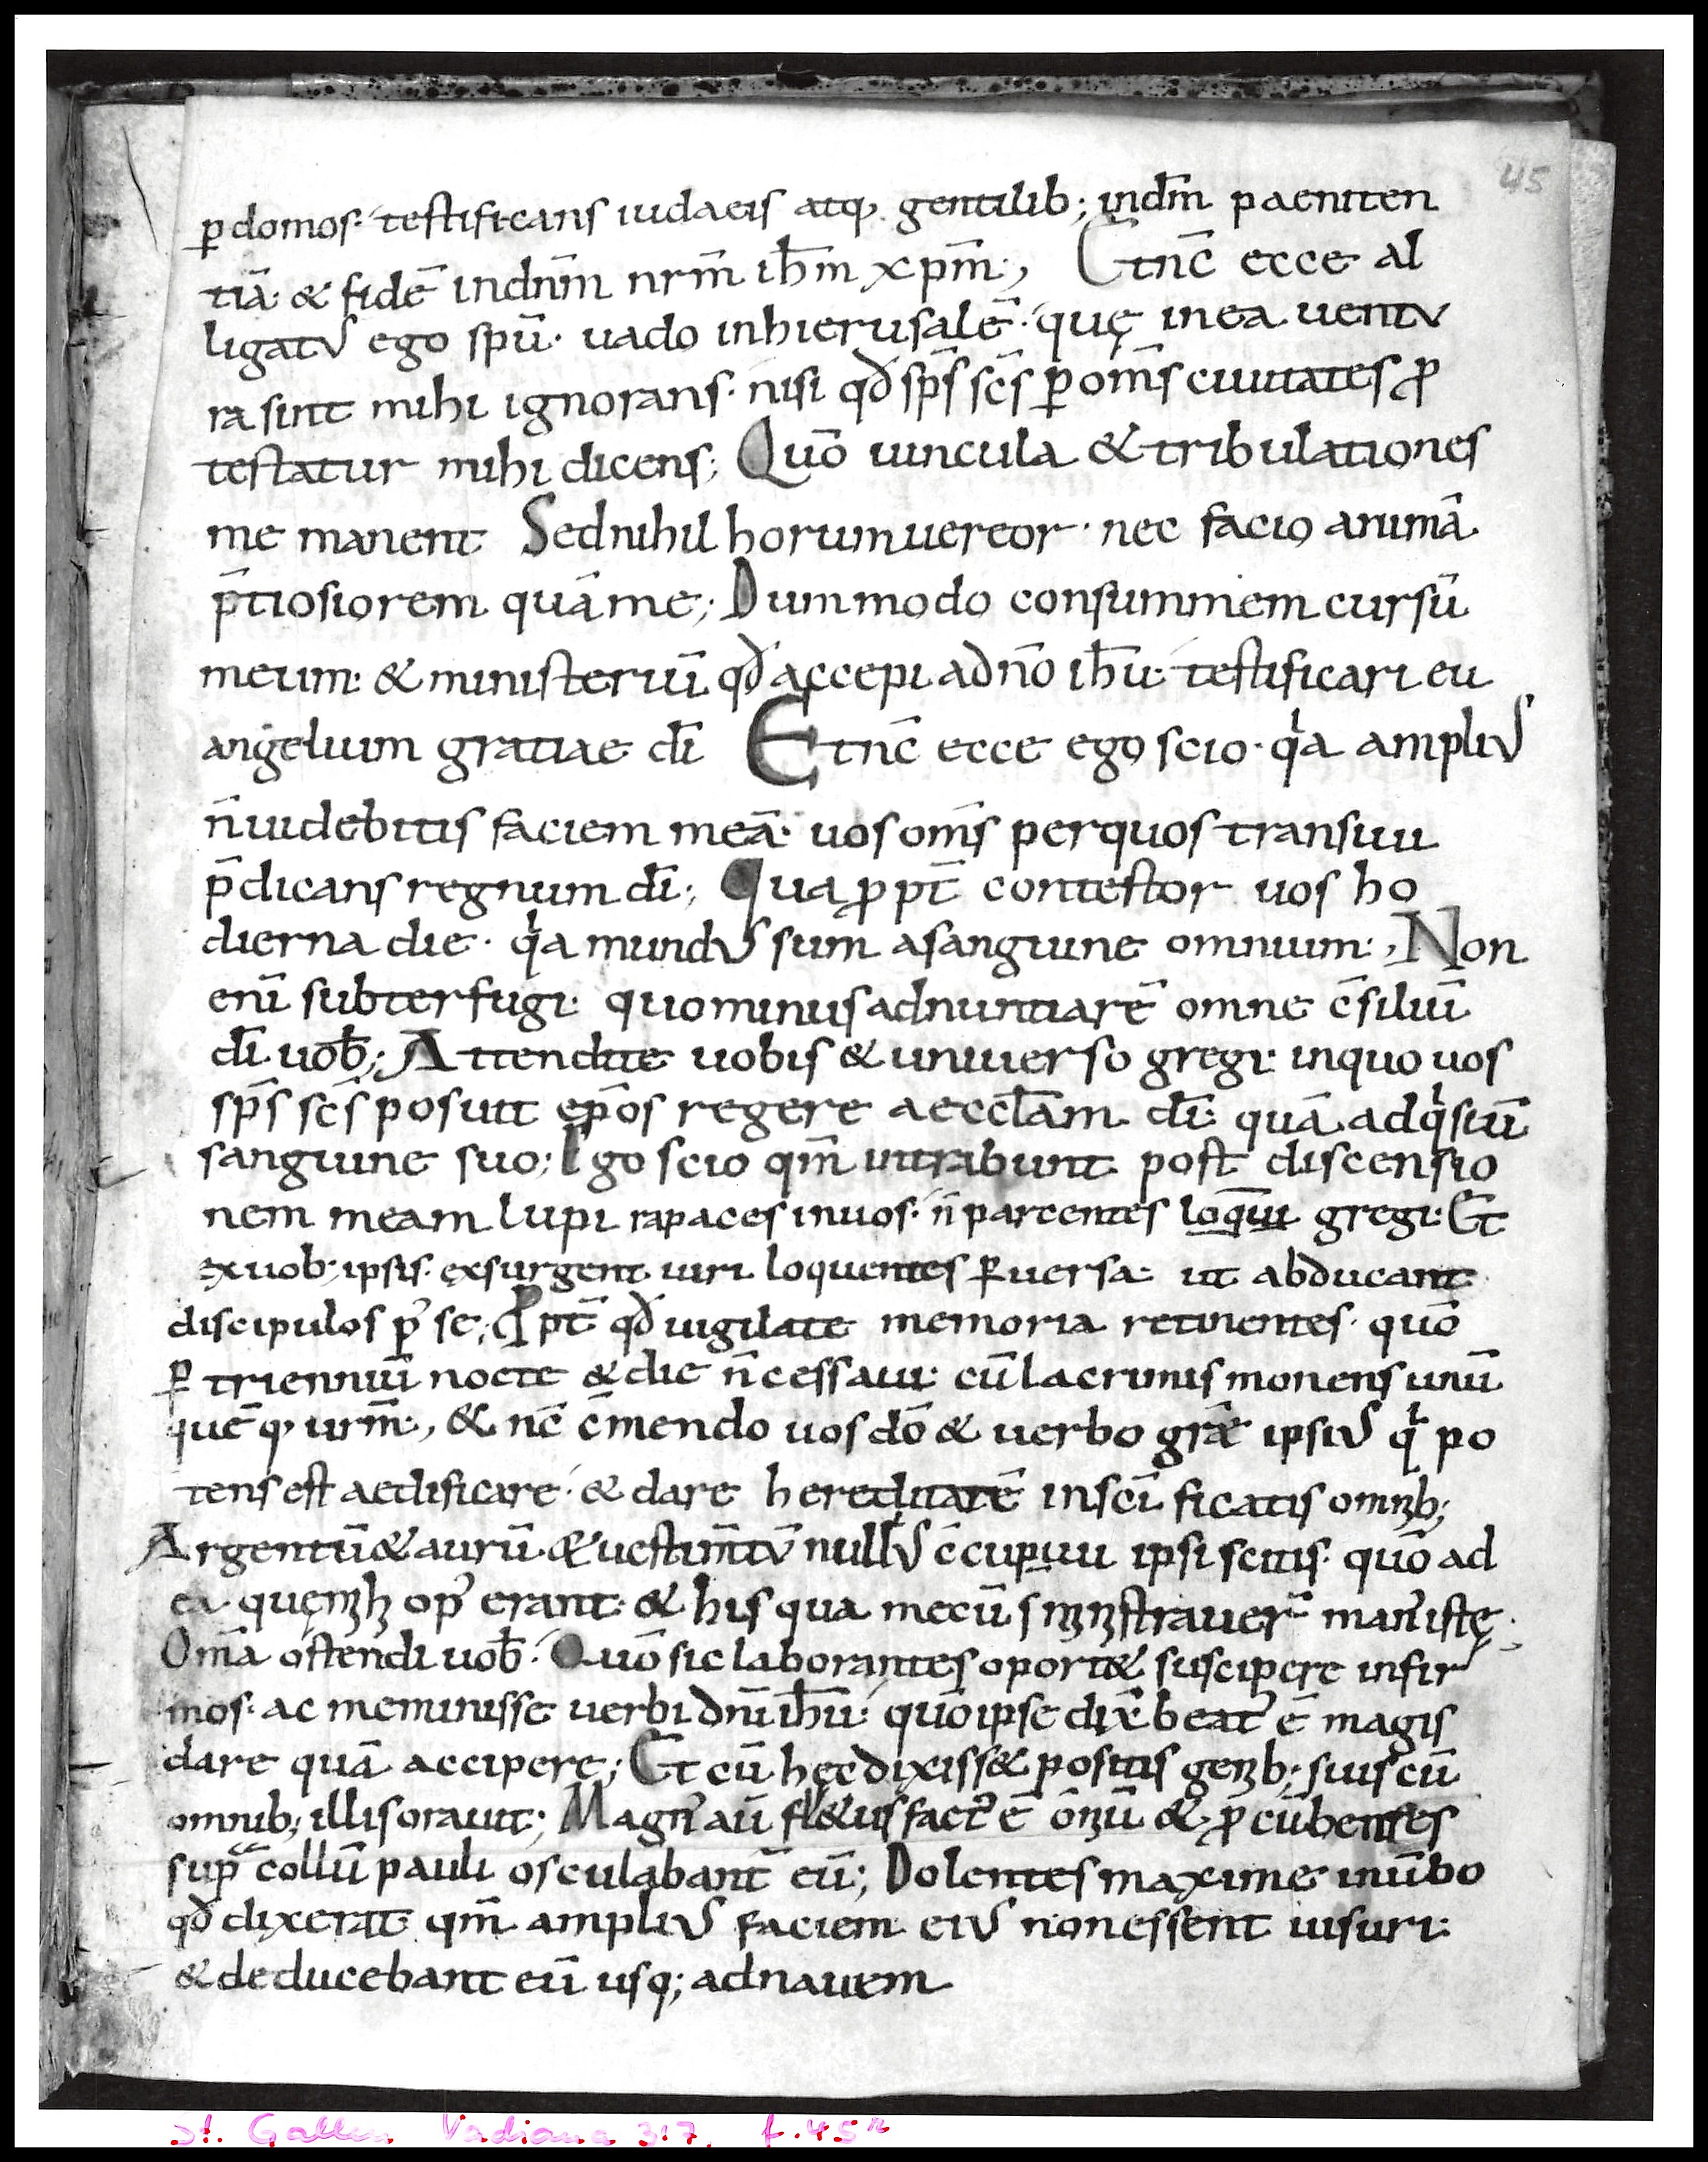 45
p̱domos· testificans iudaeis atq, gentilib; indm̄ paeniten
tiā· & fidē indnm̄ nrm̄ ihm̄ xpm̄·, Et nc̄ ecce al
ligatus ego spū· uado inhierusalē· quę inea uentu
ra sint mihi ignorans· nisi qđ sps̄ scs̄ p̱ oms̄ ciuitates ꝓ
testatur mihi dicens; Quō uincula & tribulationes
me manent Sed nihil horum uereor· nec facio animā
p̄tiosiorem quā me; Dummodo consummem cursū
meum· & ministeriū qđ accepi adnō ihū· testificari eu
angelium gratiae dī Et nc̄ ecce ego scio· qia amplius
n̄ uidebitis faciem meā· uos oms̄ perquos transiui
p̄dicans regnum dī; Qua ꝓpt̄ contestor uos ho
dierna die· qia mundus sum asanguine omnium·, Non
enī subterfugi· quominus adnuntiarē omne c̄siliū
dī uob̄; Attendite uobis & uniuerso gregi· inquo uos
sps̄ scs̄ posuit ep̄os regere aeccl̄am dī· quā adqisiuī
sanguine suo; Ego scio qm̄ intrabunt post discensio
nem meam lupi rapaces inuos· n̄ parcentes loq̄ui gregi· Et
exuob; ipsis· exsurgent uiri loquentes ꝑuersa· ut abducant
discipulos p̱ se; ꝓpt̄ qđ uigilate memoria retinentes· quō
ꝑ trienniū nocte & die n̄ cessaui· cū lacrimis monens unū
quēq, urm̄·, & nc̄ c̄mendo uos dō & uerbo grā̄e ipsius qi po
tens est aedificare· & dare hereditarē insc̄i ficatis omīb;
Argentū & aurū & uestim̄tū nullius c̄cupiui ipsi scitis· quō ad
ea quęmh op' erant· & his qua mecū s mīstrauer̄ man' istę·
Om̄a ostendi uob̄· Quō sic laborantes oport& suscipere infir
mos· ac meminisse uerbi dnī ihū· quō ipse dix̄ beat' ē magis
dare quā accipere; Et cū hęc dixiss& positis genīb; suis cū
omnib; illis orauit; Magn' aū fl&us fact' ē ōmīū & ꝓcūbentes
sup̱ collū pauli osculabant̄ eū; Dolentes maxime inūbo
qđ dixerat qm̄ amplius faciem eius non essent uisuri·
& deducebant eū usq; adnauem
St. Gallen Vadiana 317, f. 45r